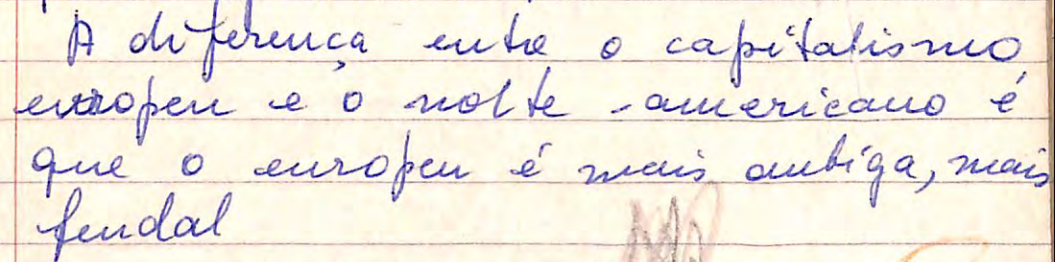 A diferença entre o capitalismo
europeu e o nolte-americano é
que o europeu é mais antiga, mais
feudal